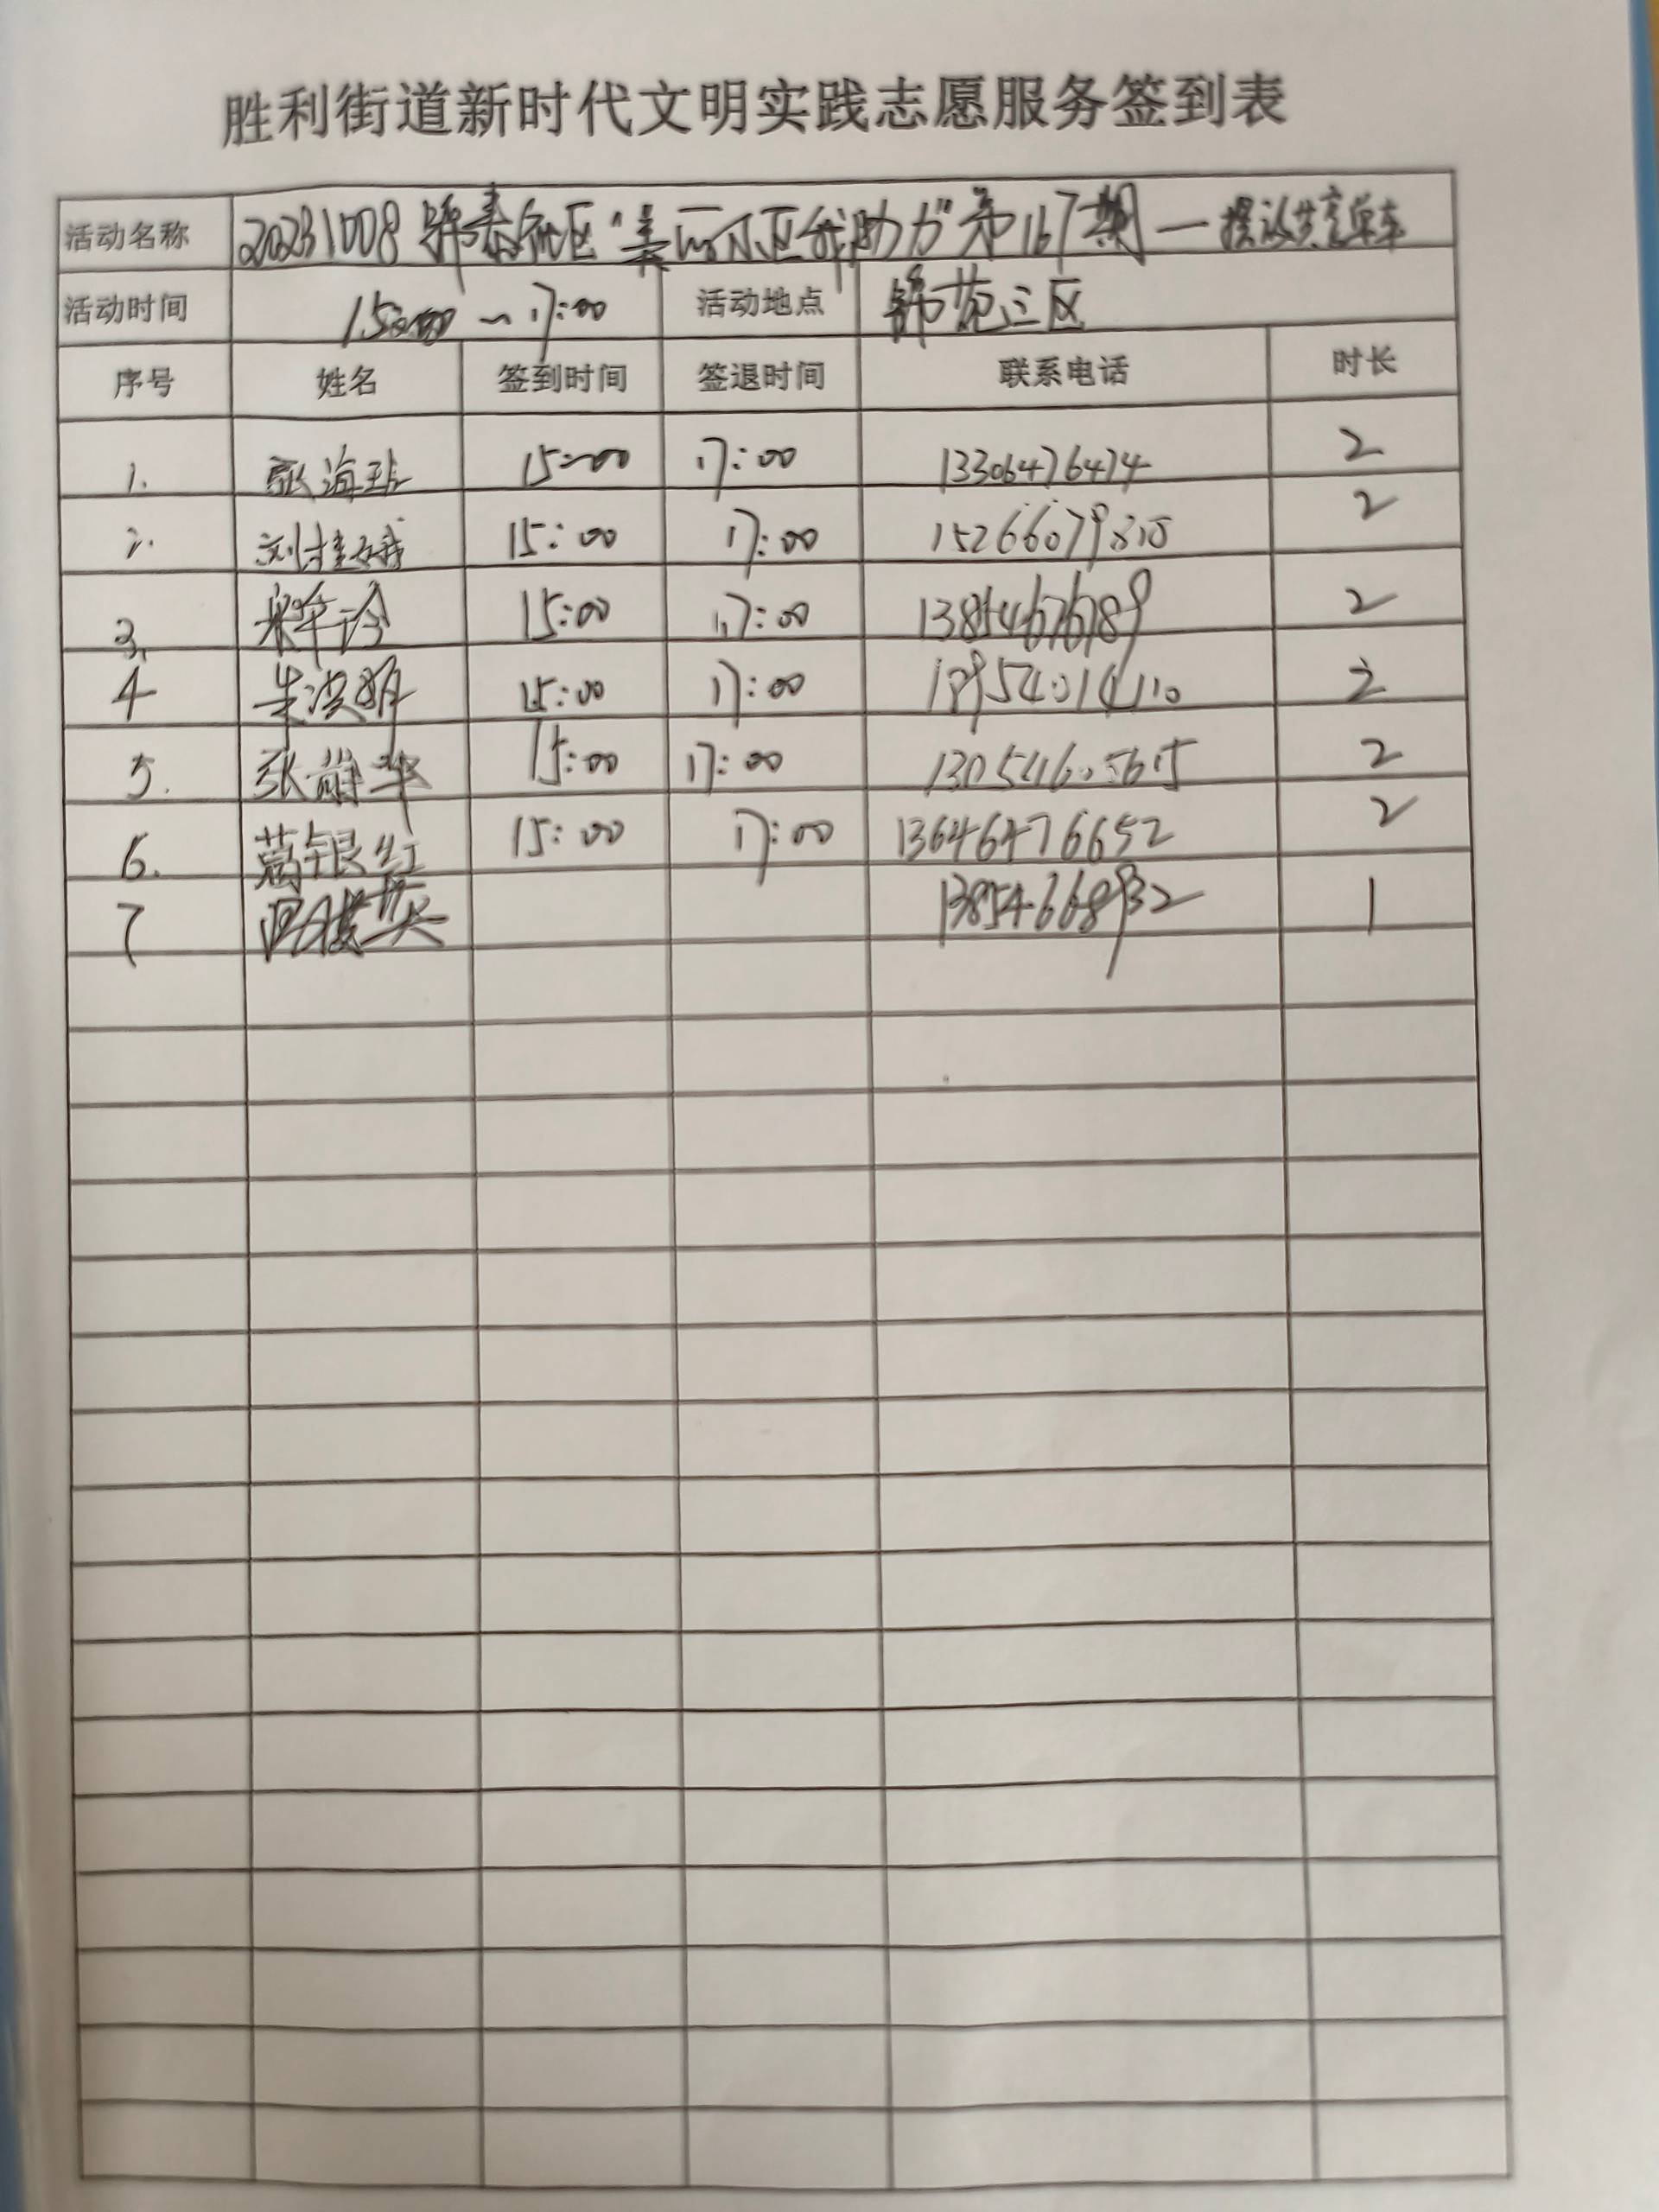 胜利街道新时代文明实践志愿服务签到表
活动名称 20231008 锦泰社区"美丽小区我助力"第167期—摆放共享单车
活动时间 15:00~17:00 活动地点 锦苑三区
序号 姓名 签到时间 签退时间 联系电话 时长
1. 张海 15:00 17:00 13306476474 2
2. 刘桂娥 15:00 17:00 2
3. 15:00 17:00 13854676789 2
4 朱洪明 15:00 17:00 18954014110 2
5. 张静华 15:00 17:00 13054605615 2
6. 葛银红 15:00 17:00 13646476652 2
7 英 13854668932 1